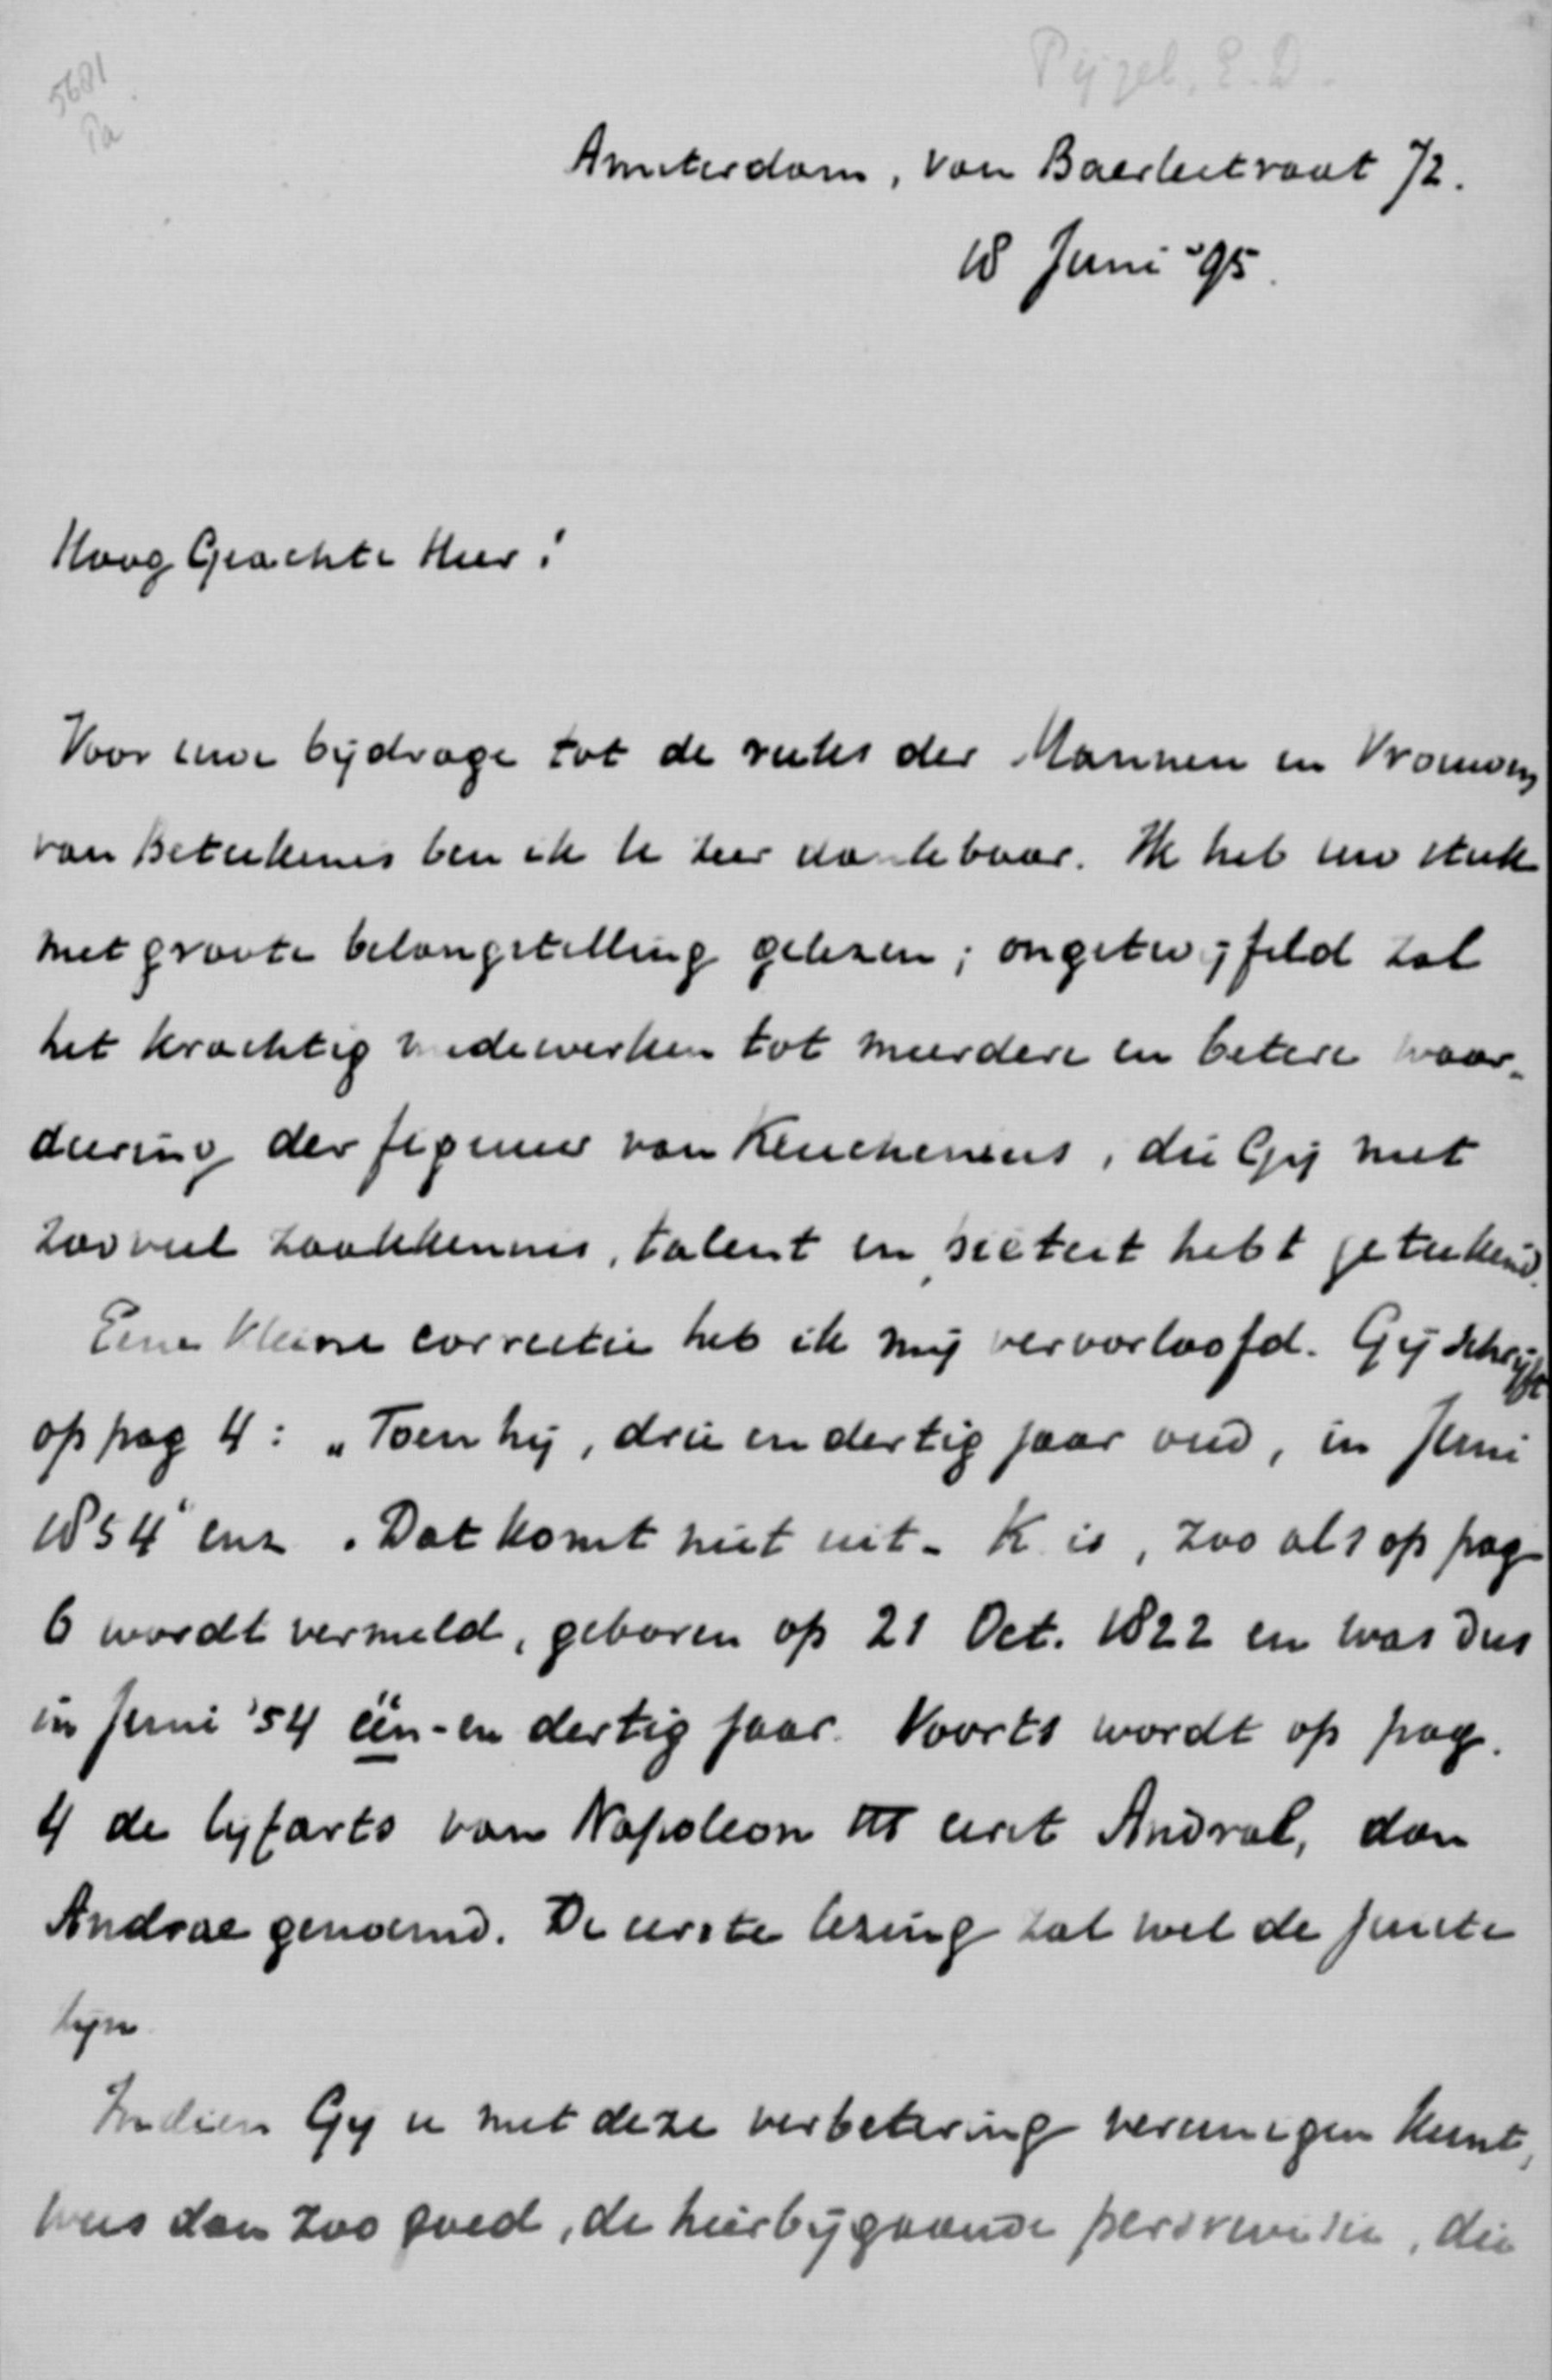 5681
Pa
Pijzel, E. D.
Amsterdam, van Baerlestraat 72.
18 Juni '95.
Hoog Geachte Heer!
Voor uwe bijdrage tot de reeks der Mannen en Vrouwen
van Beteekenis ben ik U zeer dankbaar. Ik heb uw stuk
met groote belangstelling gelezen; ongetwijfeld zal
het krachtig medewerken tot meerdere en betere waar-
deering der figuur van Keuchenius, die Gij met
zooveel zaakkennis, talent en piëteit hebt geteekend.
Eene kleine correctie heb ik mij veroorloofd. Gij schrijft
op pag 4: „Toen hij, drie en dertig jaar oud, in Juni
1854" enz. Dat komt niet uit. K. is, zoo als op pag
6 wordt vermeld, geboren op 21 Oct. 1822 en was dus
in Juni '54 één-en dertig jaar. Voorts wordt op pag.
4 de lijfarts van Napoleon III eerst Andral, dan
Andrae genoemd. De eerste lezing zal wel de juiste
zijn
Indien Gij u met deze verbetering vereenigen kunt,
wees dan zoo goed, de hierbijgaande persrevisie, die